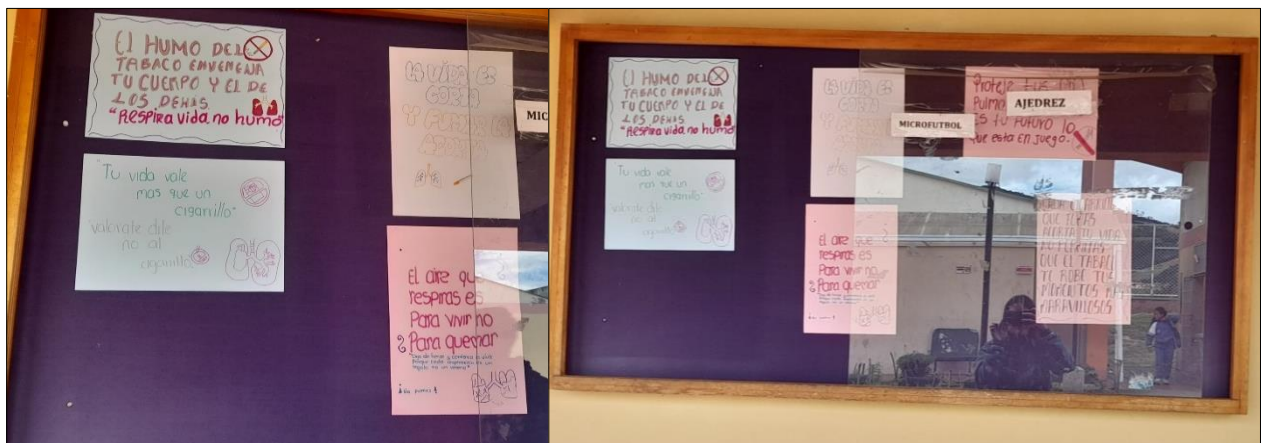 El HUMO DEL
TABACO ENVENENA
TU CUERPO Y EL DE
LOS DEMÁS
"Respira vida, no humo"
"Tu vida vale
mas que un
cigarrillo"
valorate dile
no al
cigarrillo
LA VIDA ES
CORTA
Y FUMAR LA
ACORTA
MIC
El aire que
respiras es
Para vivir no
Para quemar
El HUMO DEL
TABACO ENVENENA
TU CUERPO Y EL DE
LOS DEMÁS
"Respira vida, no humo"
"Tu vida vale
mas que un
cigarrillo"
valorate dile
no al
cigarrillo
LA VIDA ES
CORTA
Y FUMAR LA
ACORTA
MICROFUTBOL
Proteje tus
Pulmo
AJEDREZ
Es tu FUTURO lo
que esta En juego.
El aire que
respiras es
Para vivir no
Para quemar
QUE FUMAS
ACORTA TU VIDA
NO PERMITAS
QUE EL TABACO
TE ROBE TUS
MOMENTOS MAS
MARAVILLOSOS